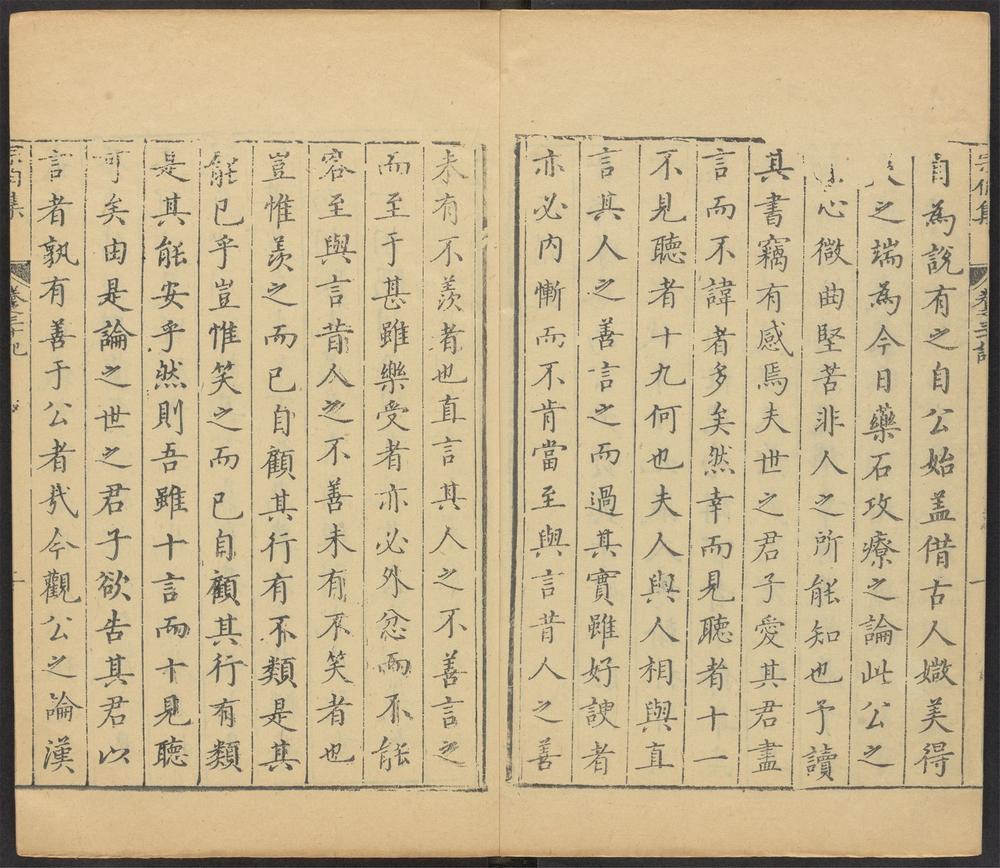 宗伯集
卷之三記
自為說有之自公始盖借古人媺美得
之端為今日藥石攻療之論此公之
心微曲堅苦非人之所能知也予讀
其書竊有感焉夫世之君子愛其君盡
言而不諱者多矣然幸而見聽者十一
不見聽者十九何也夫人與人相與直
言其人之善言之而過其實雖好諛者
亦必内慚而不肯當至與言昔人之善
未有不羨者也直言其人之不善言之
而至于甚雖樂受者亦必外忿而不能
容至與言昔人之不善未有不笑者也
豈惟羨之而已自顧其行有不類是其
能已乎豈惟笑之而已自顧其行有類
是其能安乎然則吾雖十言而十見聽
可矣由是論之世之君子欲告其君以
言者孰有善于公者哉今觀公之論漢
宗伯集
卷之三記
二